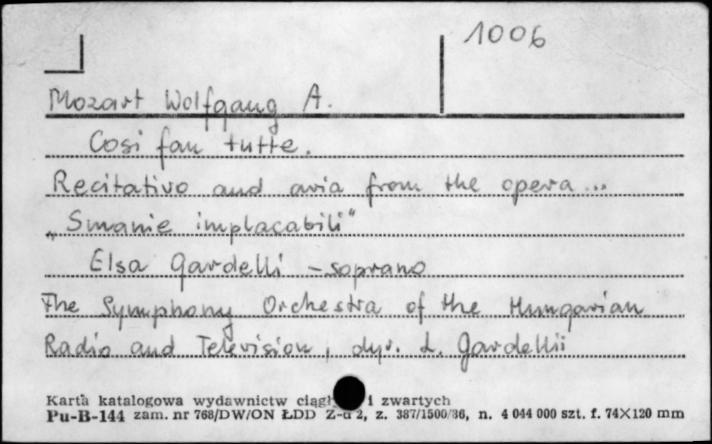 1006
Mozart Wolfgang A.
Cosi fan tutte.
Recitativo and aria from the opera...
„Smanie implacabili"
Elsa Gardelli - soprano
The Symphony Orchestra of the Hungarian
Radio and Television, dyr. L. Gardellii
Karta katalogowa wydawnictw i zwartych
Pu-B-144 zam. nr 768/DW/ON ŁDD 2, z. 387/1500/86, n. 4 044 000 szt. f. 74×120 mm